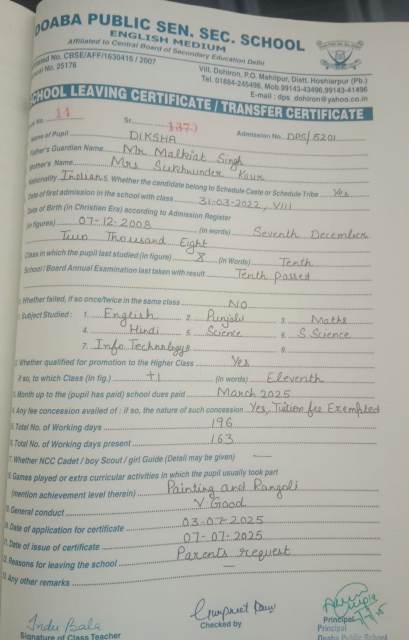 DOABA PUBLIC SEN. SEC. SCHOOL
ENGLISH MEDIUM
Affiliated to Central Board of Secondary Education Delhi
No. CBSE/AFF/1630415 / 2007
No. 25176
Vill. Dohiron, P.O. Mahilpur, Distt. Hoshiarpur (Pb.)
Tel. 01884-245496, Mob.99143-43496,99143-41496
E-mail : dps_dohiron@yahoo.co.in
SCHOOL LEAVING CERTIFICATE / TRANSFER CERTIFICATE
No. 11 Sr. 1377 Admission No. DPS/5201
Name of Pupil DIKSHA
Father's/Guardian Name Mr Malkiat Singh
Mother's Name Mrs Sukhwinder Kaur
Nationality Indian Whether the candidate belong to Schedule Caste or Schedule Tribe Yes
Date of first admission in the school with class 31-03-2022, VIII
Date of Birth (in Christian Era) according to Admission Register
(in figures) 07-12-2008 (in words) Seventh December
Two Thousand Eight
Class in which the pupil last studied (in figure) (in Words) Tenth
School / Board Annual Examination last taken with result Tenth passed
Whether failed, if so once/twice in the same class NO
Subject Studied : 1. English 2. Punjabi 3. Maths
4. Hindi 5. Science 6. S. Science
7. Info. Technology 8.
Whether qualified for promotion to the Higher Class Yes
If so, to which Class (in fig.) +1 (in words) Eleventh
Month up to the (pupil has paid) school dues paid March 2025
Any fee concession availed of : if so, the nature of such concession Yes, Tuition fee Exempted
Total No. of Working days 196
Total No. of Working days present 163
Whether NCC Cadet / boy Scout / girl Guide (Detail may be given) —
Games played or extra curricular activities in which the pupil usually took part
(mention achievement level therein) Painting and Rangoli
General conduct V Good
Date of application for certificate 03-07-2025
Date of issue of certificate 07-07-2025
Reasons for leaving the school Parents request
Any other remarks —
Indu Bala
Signature of Class Teacher
Gurpreet Kaur
Checked by
Principal
Principal
Doaba Public School